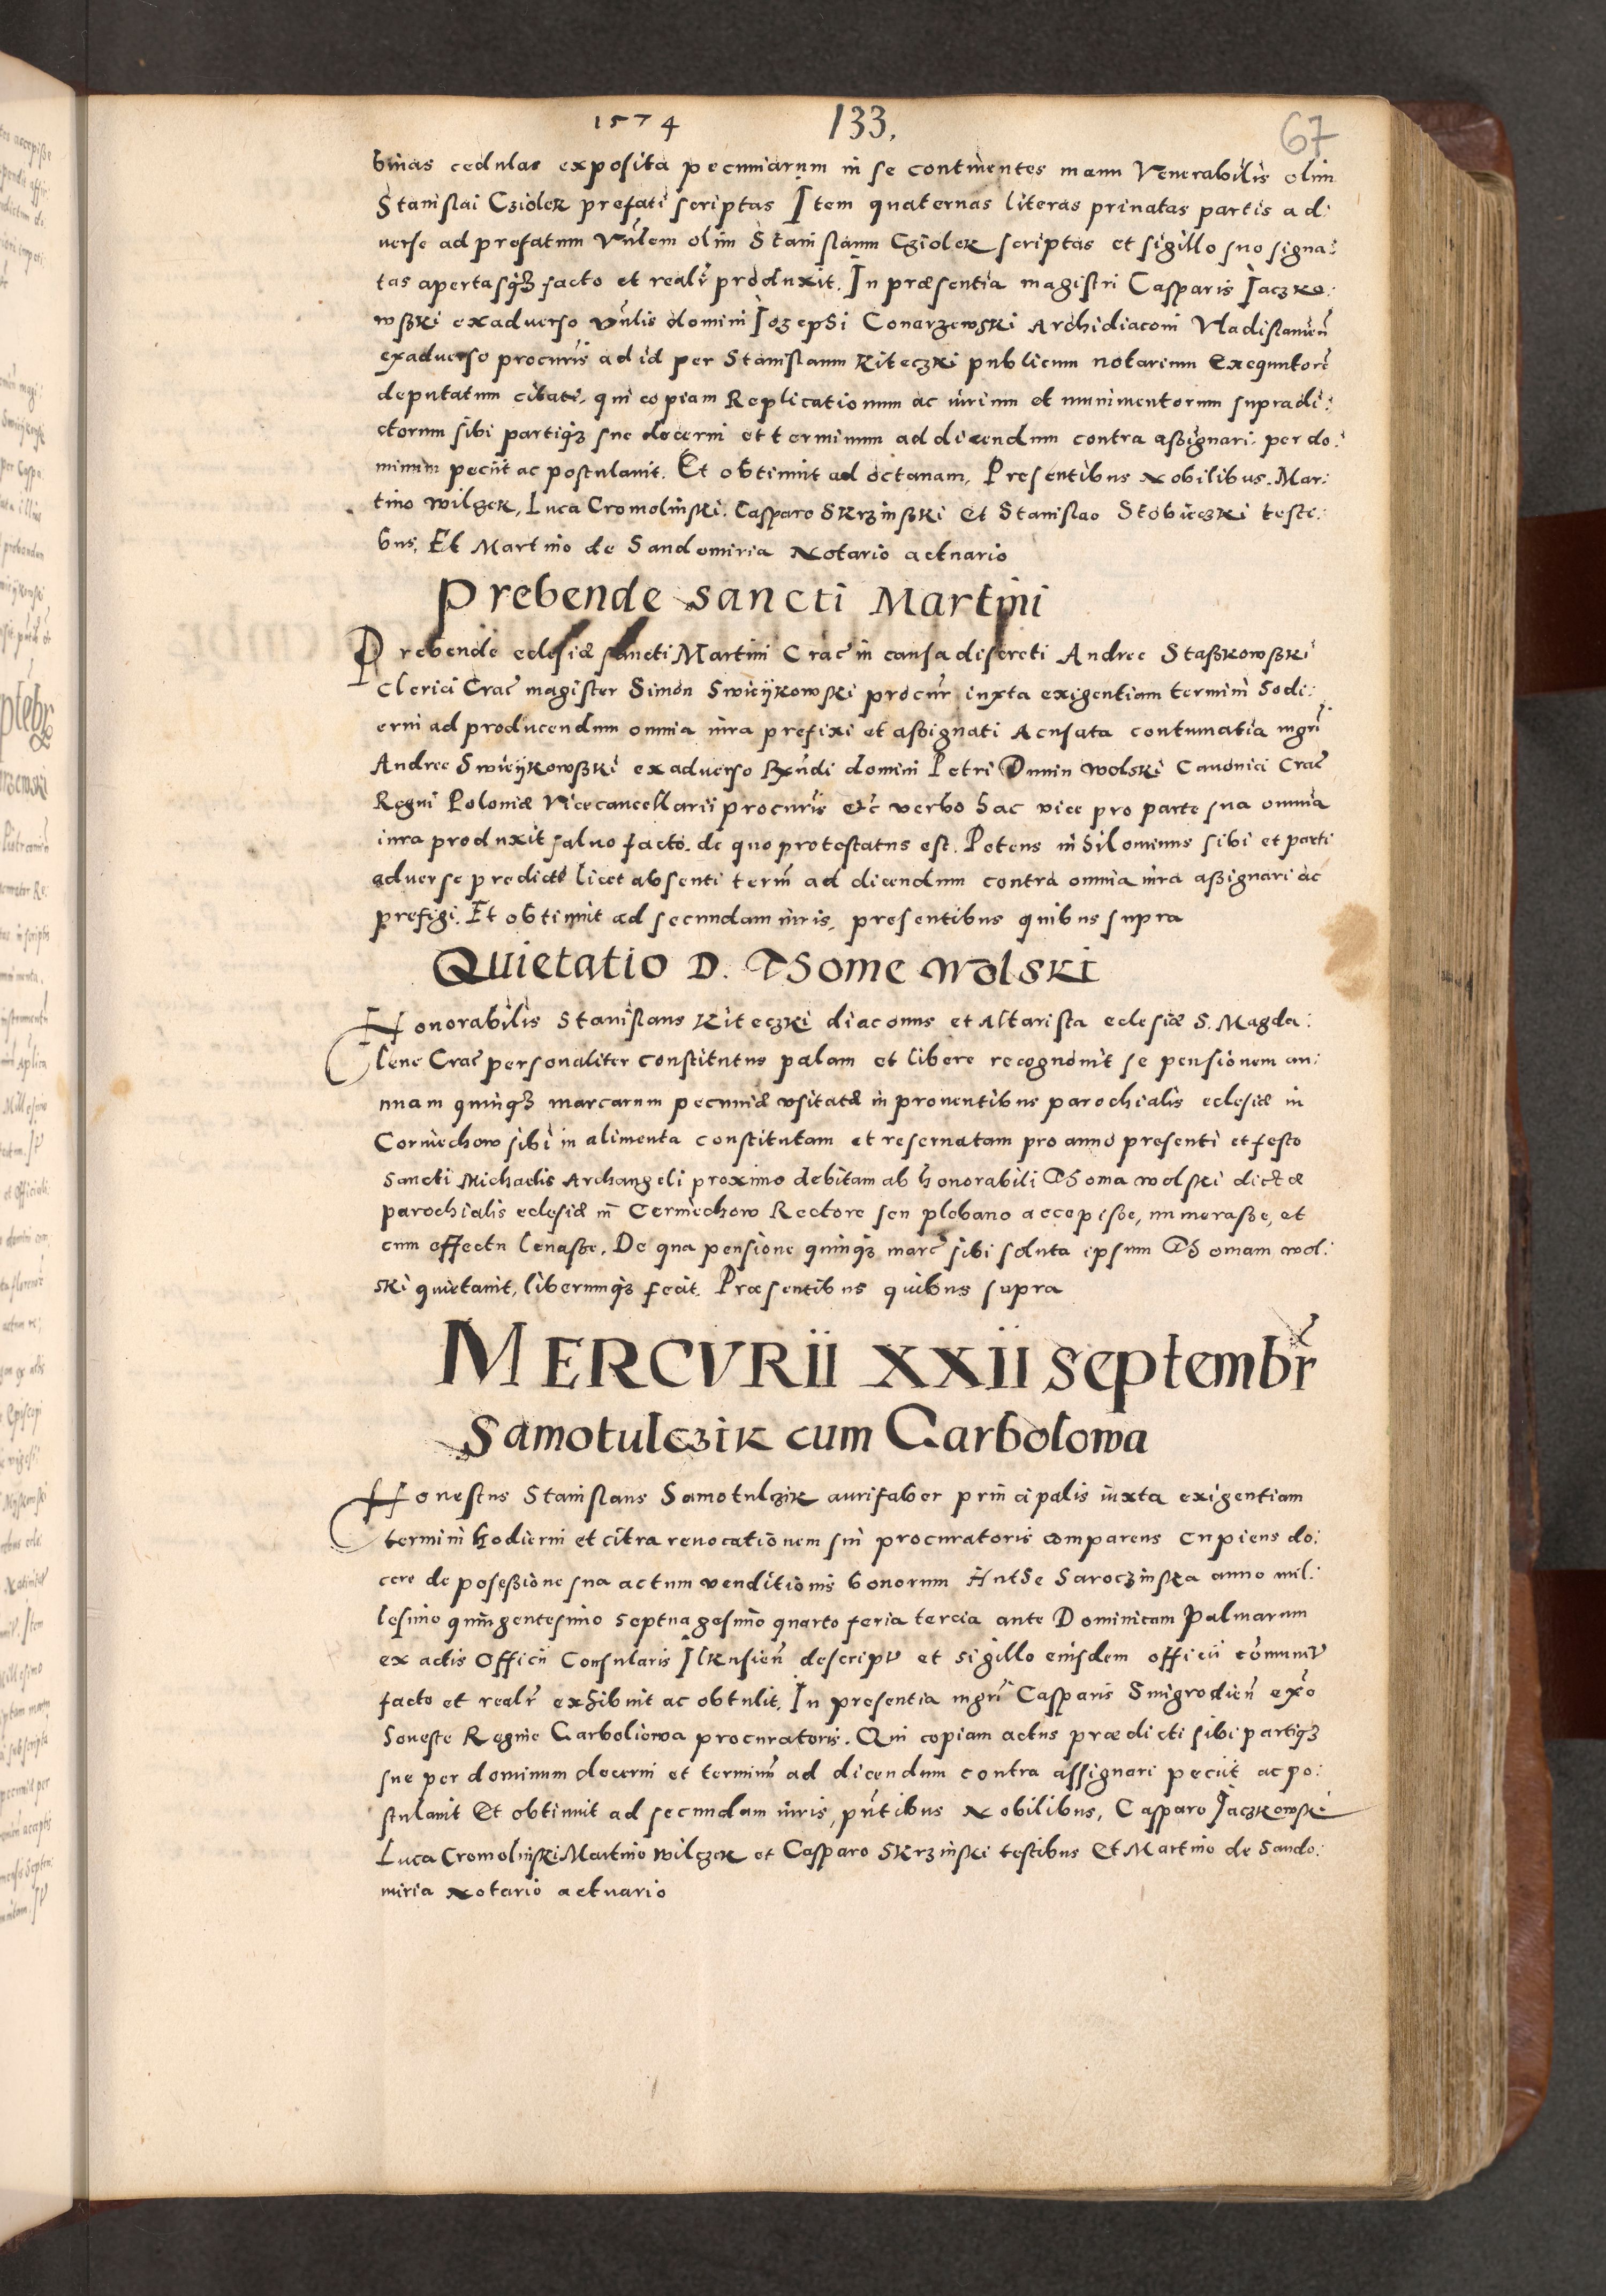 1574 133. 67
binas cedulas exposita pecuniarum in se continentes manu Venerabilis olim
Stanislai Cziolek prefati scriptas Item quaternas literas priuatas partis ad:
uerse ad prefatum Vūlem olim Stanislaum Cziolek scriptas et sigillo suo signa:
tas apertasqʒ facto et realr̄ produxit. In præsentia magistri Casparis Iaczko:
wßki exaduerso vūlis domini Iozephi Conarzewski Archidiaconi Vladislauieñ
exaduerso procuris̄ ad id per Stanislaum Kiteczki publicum notarium Exequutorē
deputatum citati, qui copiam Replicationum ac iurium et munimentorum supradi:
ctorum sibi partiqʒ sue decerni et terminum ad dicendum contra aßignari per do:
minum peciit ac postulauit. Et obtinuit ad octauam, Presentibus Nobilibus. Mar:
tino Wilgek, Luca Cromolinski. Casparo Skrzinßki Et Stanislao Stobieczki testi:
bus. Et Martino de Sandomiria Notario actuario
Prebende Sancti Martini
Prebende eclesiæ sancti Martini Crac̄ in causa discreti Andree Staßkowßki
Clerici Crac̄ magister Simon Swieykowski procur̄ iuxta exigentiam termini hodi:
erni ad producendum omnia iura prefixi et aßignati Acusata contumatia mgri̅
Andree Swieykowßki exaduerso Rn̄di domini Petri Dunin Wolski Canonici Crac̄
Regni Poloniæ Vicecancellarii procuris̄ &c̄ verbo hac vice pro parte sua omnia
iura produxit saluo facto. de quo protestatus est. Petens nihilominus sibi et parti
aduerse predicte licet absenti term̄ ad dicendum contra omnia iura aßignari ac
prefigi. Et obtinuit ad secundam iuris, presentibus quibus supra
Quietatio D. Thome Wolski
Honorabilis Stanislaus Kiteczki diaconus et Altarista eclesiæ S. Magda:
lene Crac̄ personaliter constitutus palam et libere recognouit se pensionem an:
nuam quinqʒ marcarum pecuniæ vsitatæ in prouentibus parochialis eclesiæ in
Cormechow sibi in alimenta constitutam et reseruatam pro anno presenti et festo
Sancti Michaelis Archangeli proximo debitam ab honorabili Thoma Wolski dictæ
parochialis eclesiæ in Cermechow Rectore seu plebano accepisße, numeraße, et
cum effectu leuaße. De qua pensione quinqʒ marc̄ sibi soluta ipsum Thomam Wol:
ski quietauit, liberumqʒ fecit. Præsentibus quibus supra
MERCVRii XXii Septembr̄
Samotulczik cum Garbolowa
Honestus Stanislaus Samotulczik aurifaber principalis iuxta exigentiam
termini hodierni et citra reuocationem sui procuratoris comparens Cupiens do:
cere de poseßione sua actum venditionis bonorum Huthe Saroczinska anno mil:
lesimo quingentesimo septuagesimo quarto feria tercia ante Dominicam Palmarum
ex actis Officii Consularis Ilkusieñ descriptū et sigillo eiusdem officii cōmunitū
facto et realr̄ exhibuit ac obtulit. In presentia mgri̅ Casparis Smigrodieñ ex̄o
honeste Regine Garboliowa procuratoris. Qui copiam actus prædicti sibi partiqʒ
sue per dominum decerni et terminū ad dicendum contra assignari peciit ac po:
stulauit Et obtinuit ad secundam iuris, pūtibus Nobilibus, Casparo Iaczkowski
Luca Cromolinski Martino Wilczek et Casparo Skrzinski testibus Et Martino de Sando:
miria Notario actuario